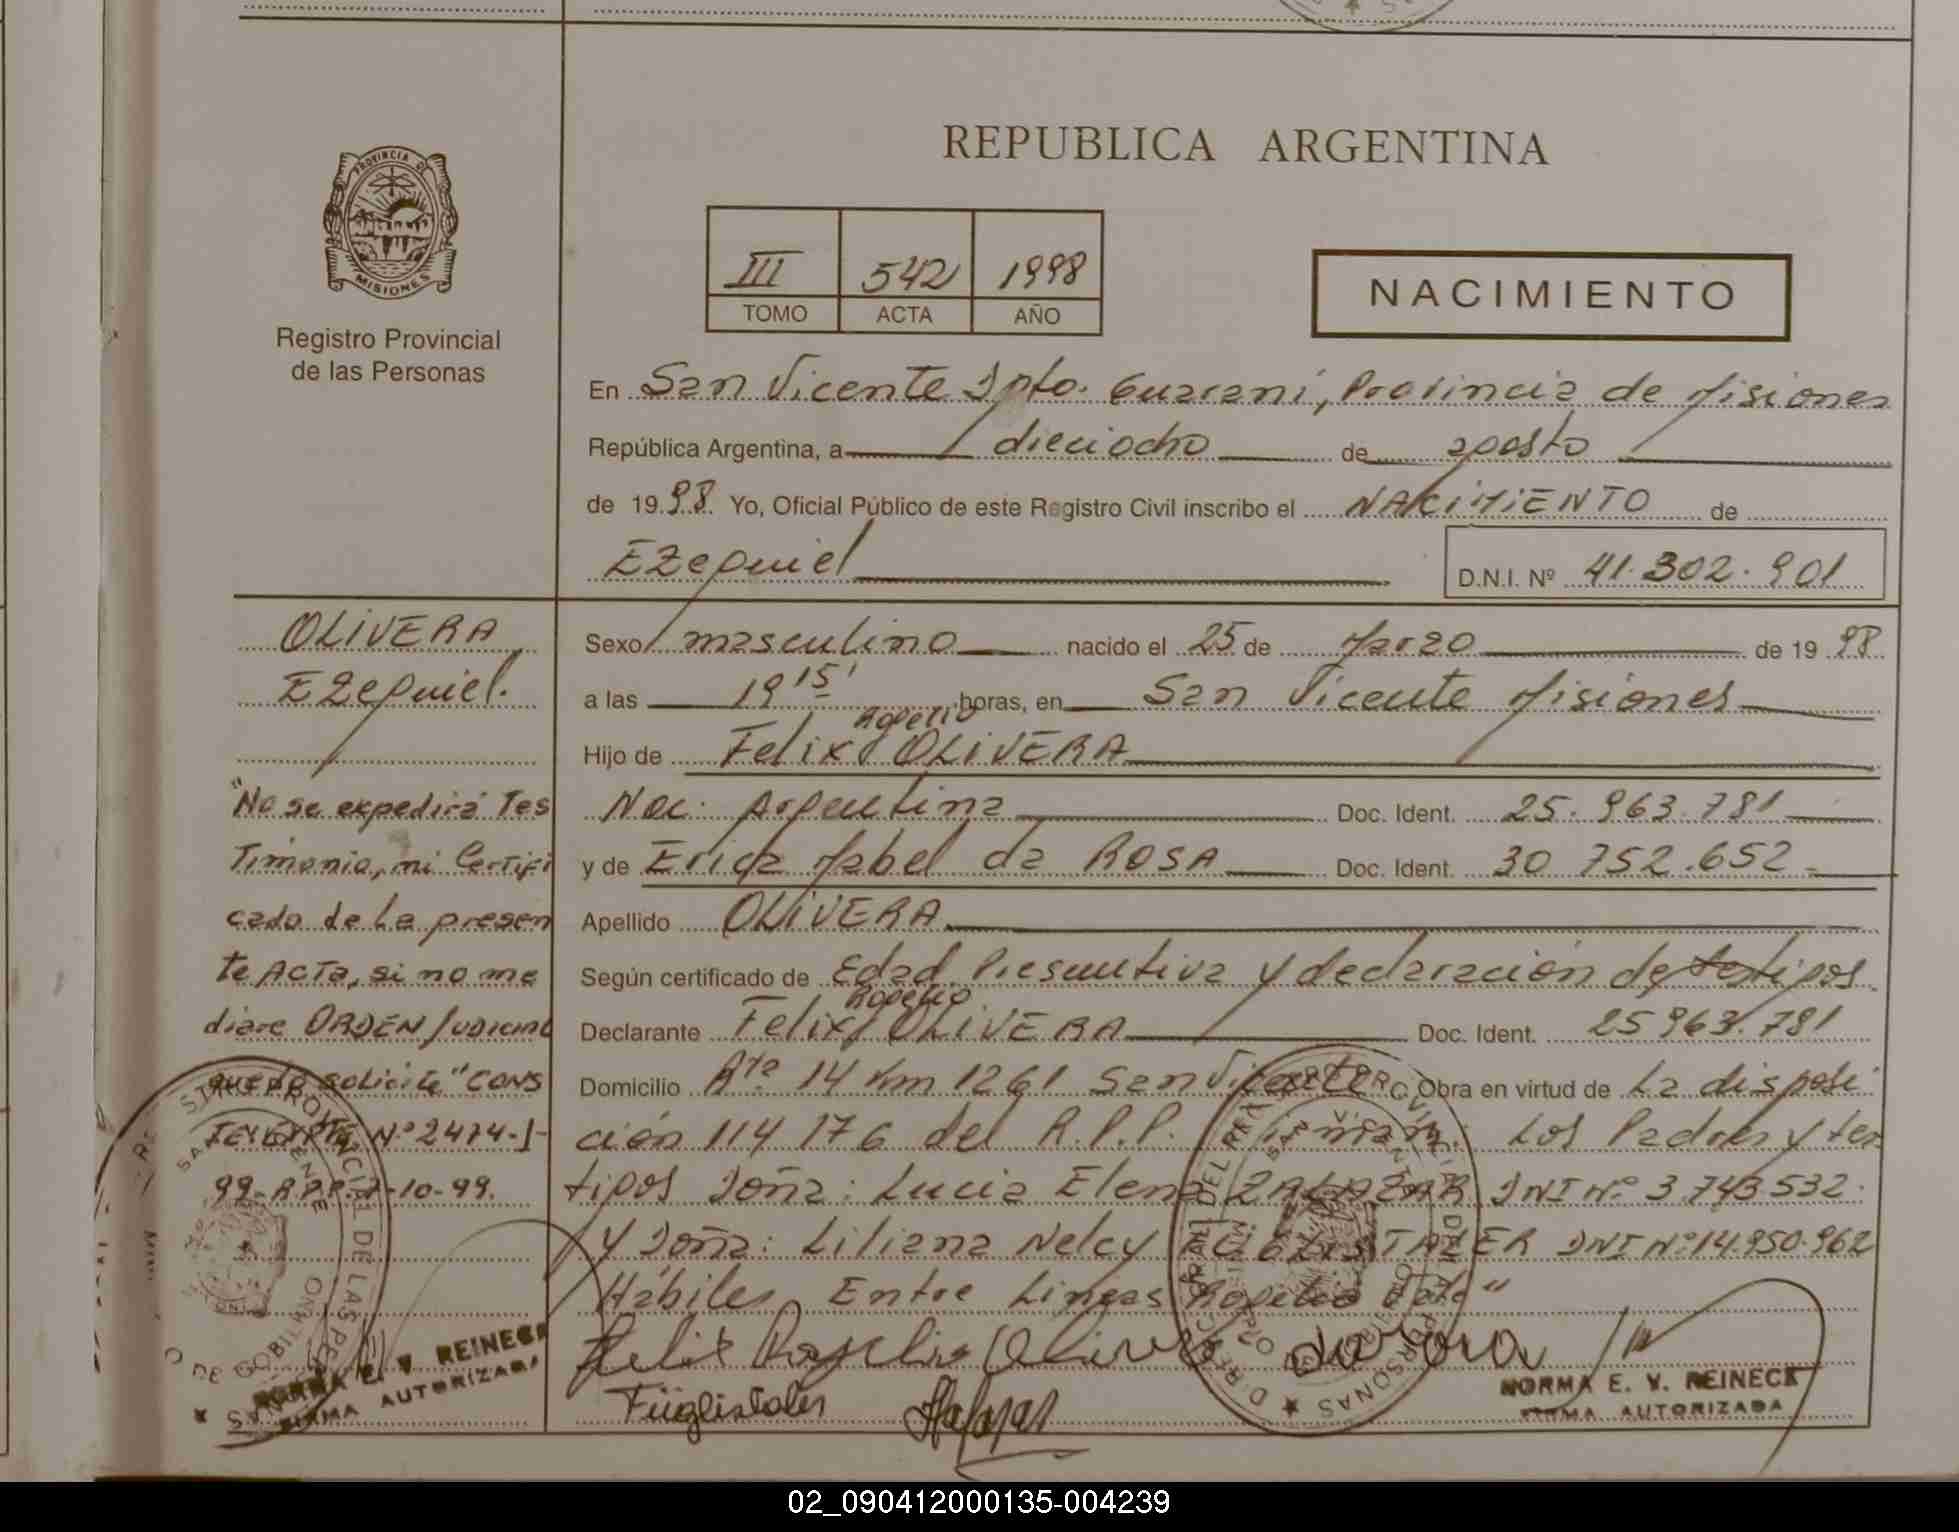 REPUBLICA ARGENTINA
PROVINCIA DE
MISIONES
Registro Provincial
de las Personas
III 542 1998
TOMO ACTA AÑO
NACIMIENTO
En San Vicente Dpto. Guarani, Provincia de Misiones
República Argentina, a dieciocho de agosto
de 1998. Yo, Oficial Público de este Registro Civil inscribo el NACIMIENTO de
Ezequiel
D.N.I. Nº 41.302.901
OLIVERA
Ezequiel.
"No se expedirá Tes
Timonio, ni Certifi
cado de La presen
te Acta, si no me
diare ORDEN JUDICIAL
que lo solicite" CONS
Nº 2474-J-
99-R.P.P. 7-10-99.
Sexo masculino nacido el 25 de Marzo de 1998
a las 19 15' horas, en San Vicente Misiones
Rogelio
Hijo de Felix OLIVERA
Nac. Argentina Doc. Ident. 25.963.781
y de Erica Mabel da ROSA Doc. Ident. 30 752.652
Apellido OLIVERA
Según certificado de Edad Presuntiva y declaración de testigos
Rogelio
Declarante Felix OLIVERA Doc. Ident. 25963.781
Domicilio Rta 14 Km 1261 San Vicente Obra en virtud de La disposi
ción 114 176 del R.P.P. Firman: Los Padres y tes
tigos Doña: Lucia Elena ZALAZAR DNI Nº 3.743.532.
y Doña: Liliana Nelcy DNI Nº 14.950.962
Hábiles Entre Lineas "Rogelio Vale"
Felix Rogelio Olivera da rosa
NORMA E. V. REINECK
FIRMA AUTORIZADA
NORMA E. V. REINECK
FIRMA AUTORIZADA
02_090412000135-004239